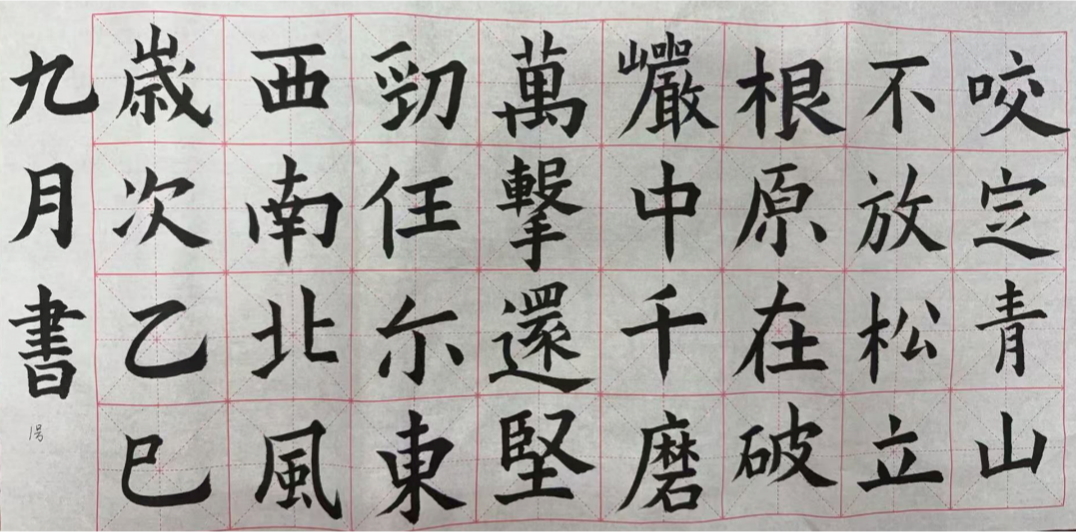 咬定青山
不放松立
根原在破
巗中千磨
萬撃還堅
勁任尔東
西南北風
歲次乙巳
九月書
1号